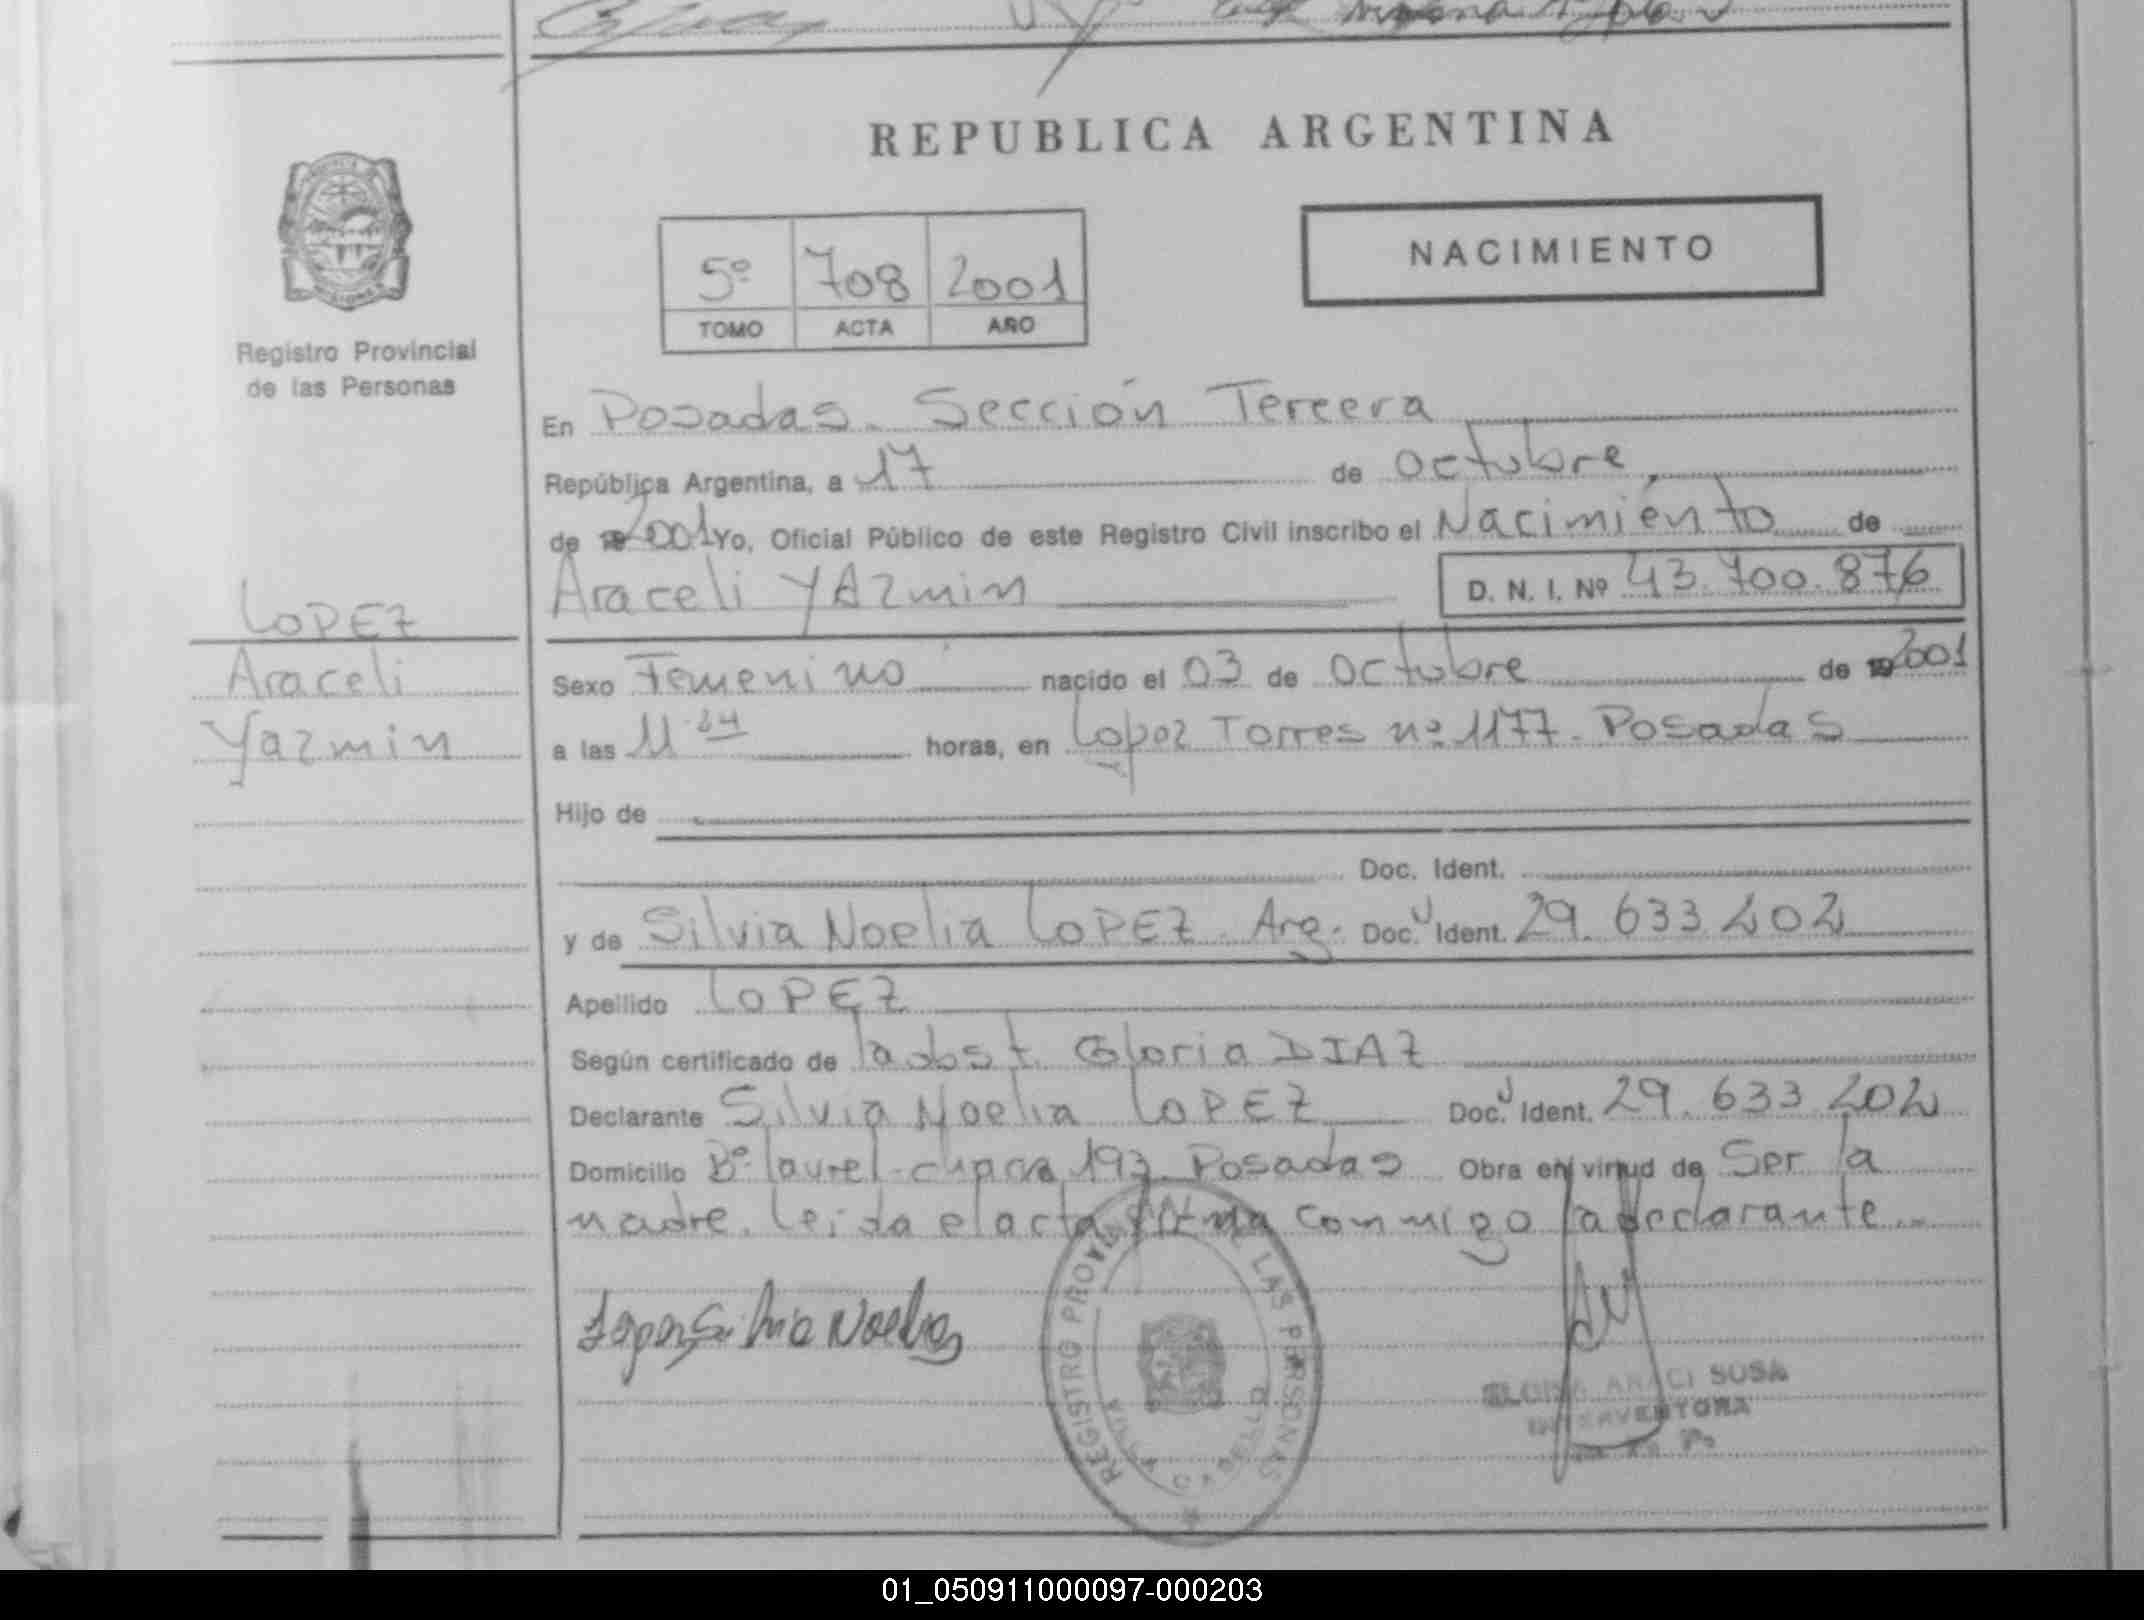 REPUBLICA ARGENTINA
NACIMIENTO
5º 708 2001
TOMO ACTA AÑO
Registro Provincial
de las Personas
En Posadas. Sección Tercera
República Argentina, a 17 de octubre,
de 2001 Yo, Oficial Público de este Registro Civil inscribo el Nacimiento de
Araceli YAzmin D. N. I. Nº 43.700.876
LOPEZ
Araceli
Yazmin
Sexo Femenino nacido el 03 de Octubre de 2001
a las 11 24 horas, en Lopez Torres nº 1177. Posadas
Hijo de
Doc. Ident.
y de Silvia Noelia LOPEZ. Arg. Doc. Ident. 29.633.202
Apellido LOPEZ
Según certificado de la obst. Gloria DIAZ
Declarante Silvia Noelia LOPEZ Doc. Ident. 29.633.202
Domicilio Bº laurel - chacra 197 Posadas Obra en virtud de Ser la
madre. Leida el acta firma conmigo la declarante.
Lopez Silvia Noelia
REGISTRO PROVINCIAL DE LAS PERSONAS
VILLA CABELLO
ARACI SOSA
INTERVENTORA
01_050911000097-000203